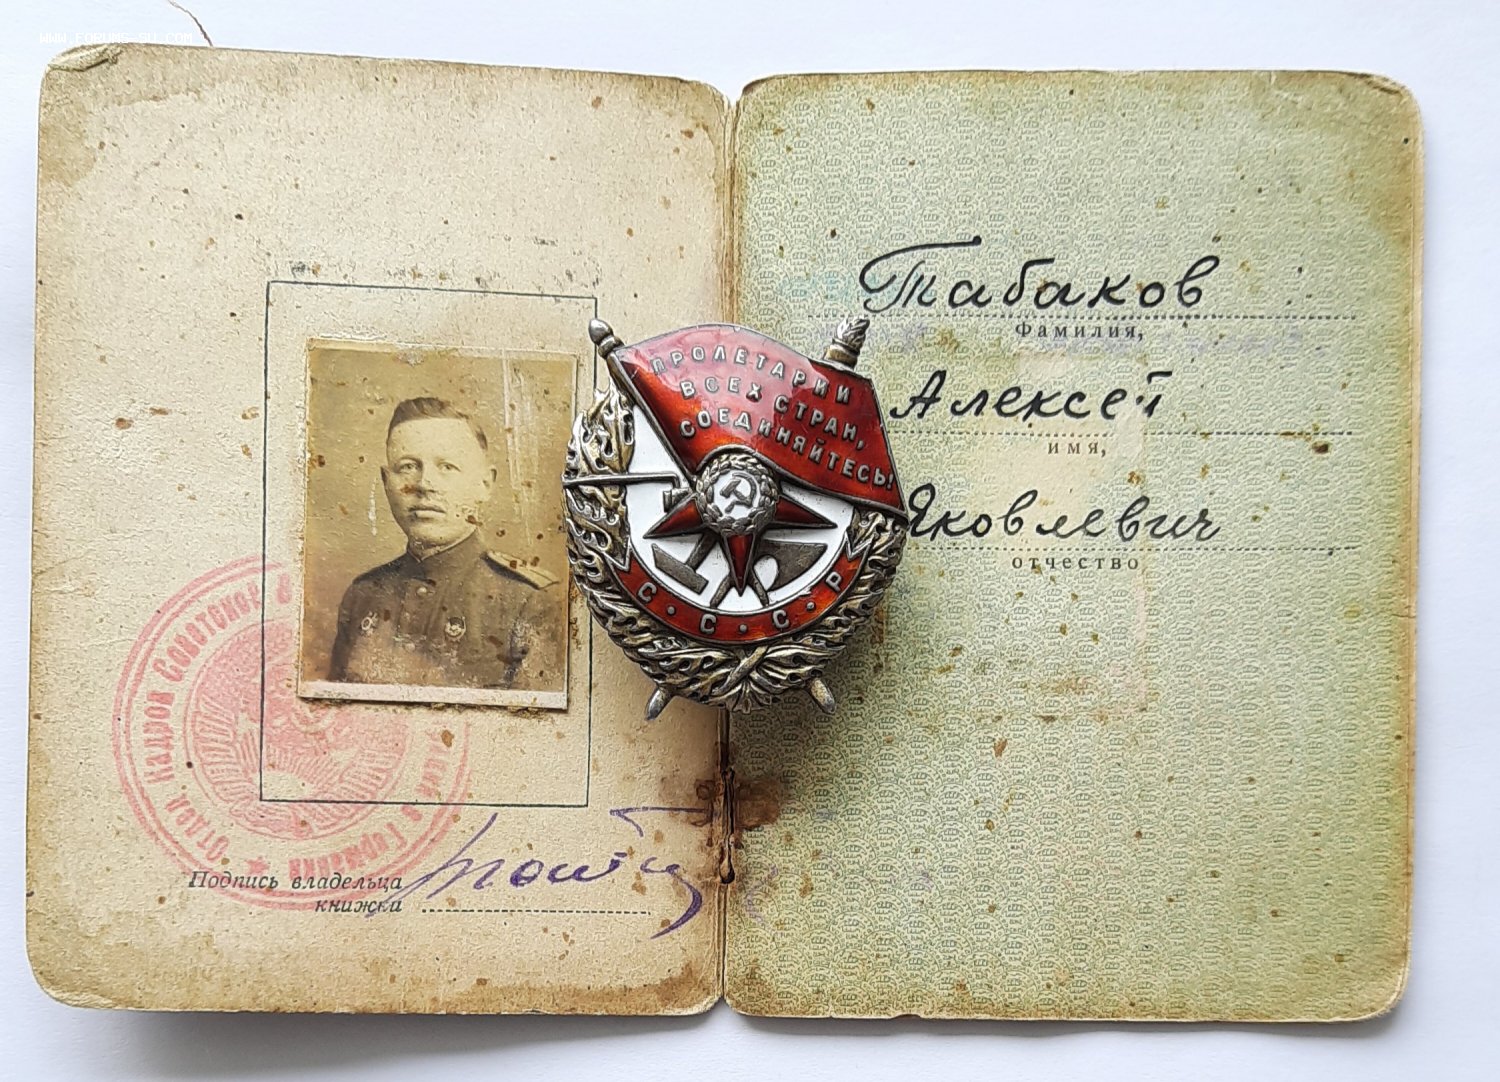 WWW.FORUMS-SU.COM
Табаков
Фамилия,
Алексей
имя,
Яковлевич
отчество
ПРОЛЕТАРИИ
ВСЕХ СТРАН,
СОЕДИНЯЙТЕСЬ!
С · С · С · Р
Отдел Кадров Советское
в Германии
Подпись владельца
книжки